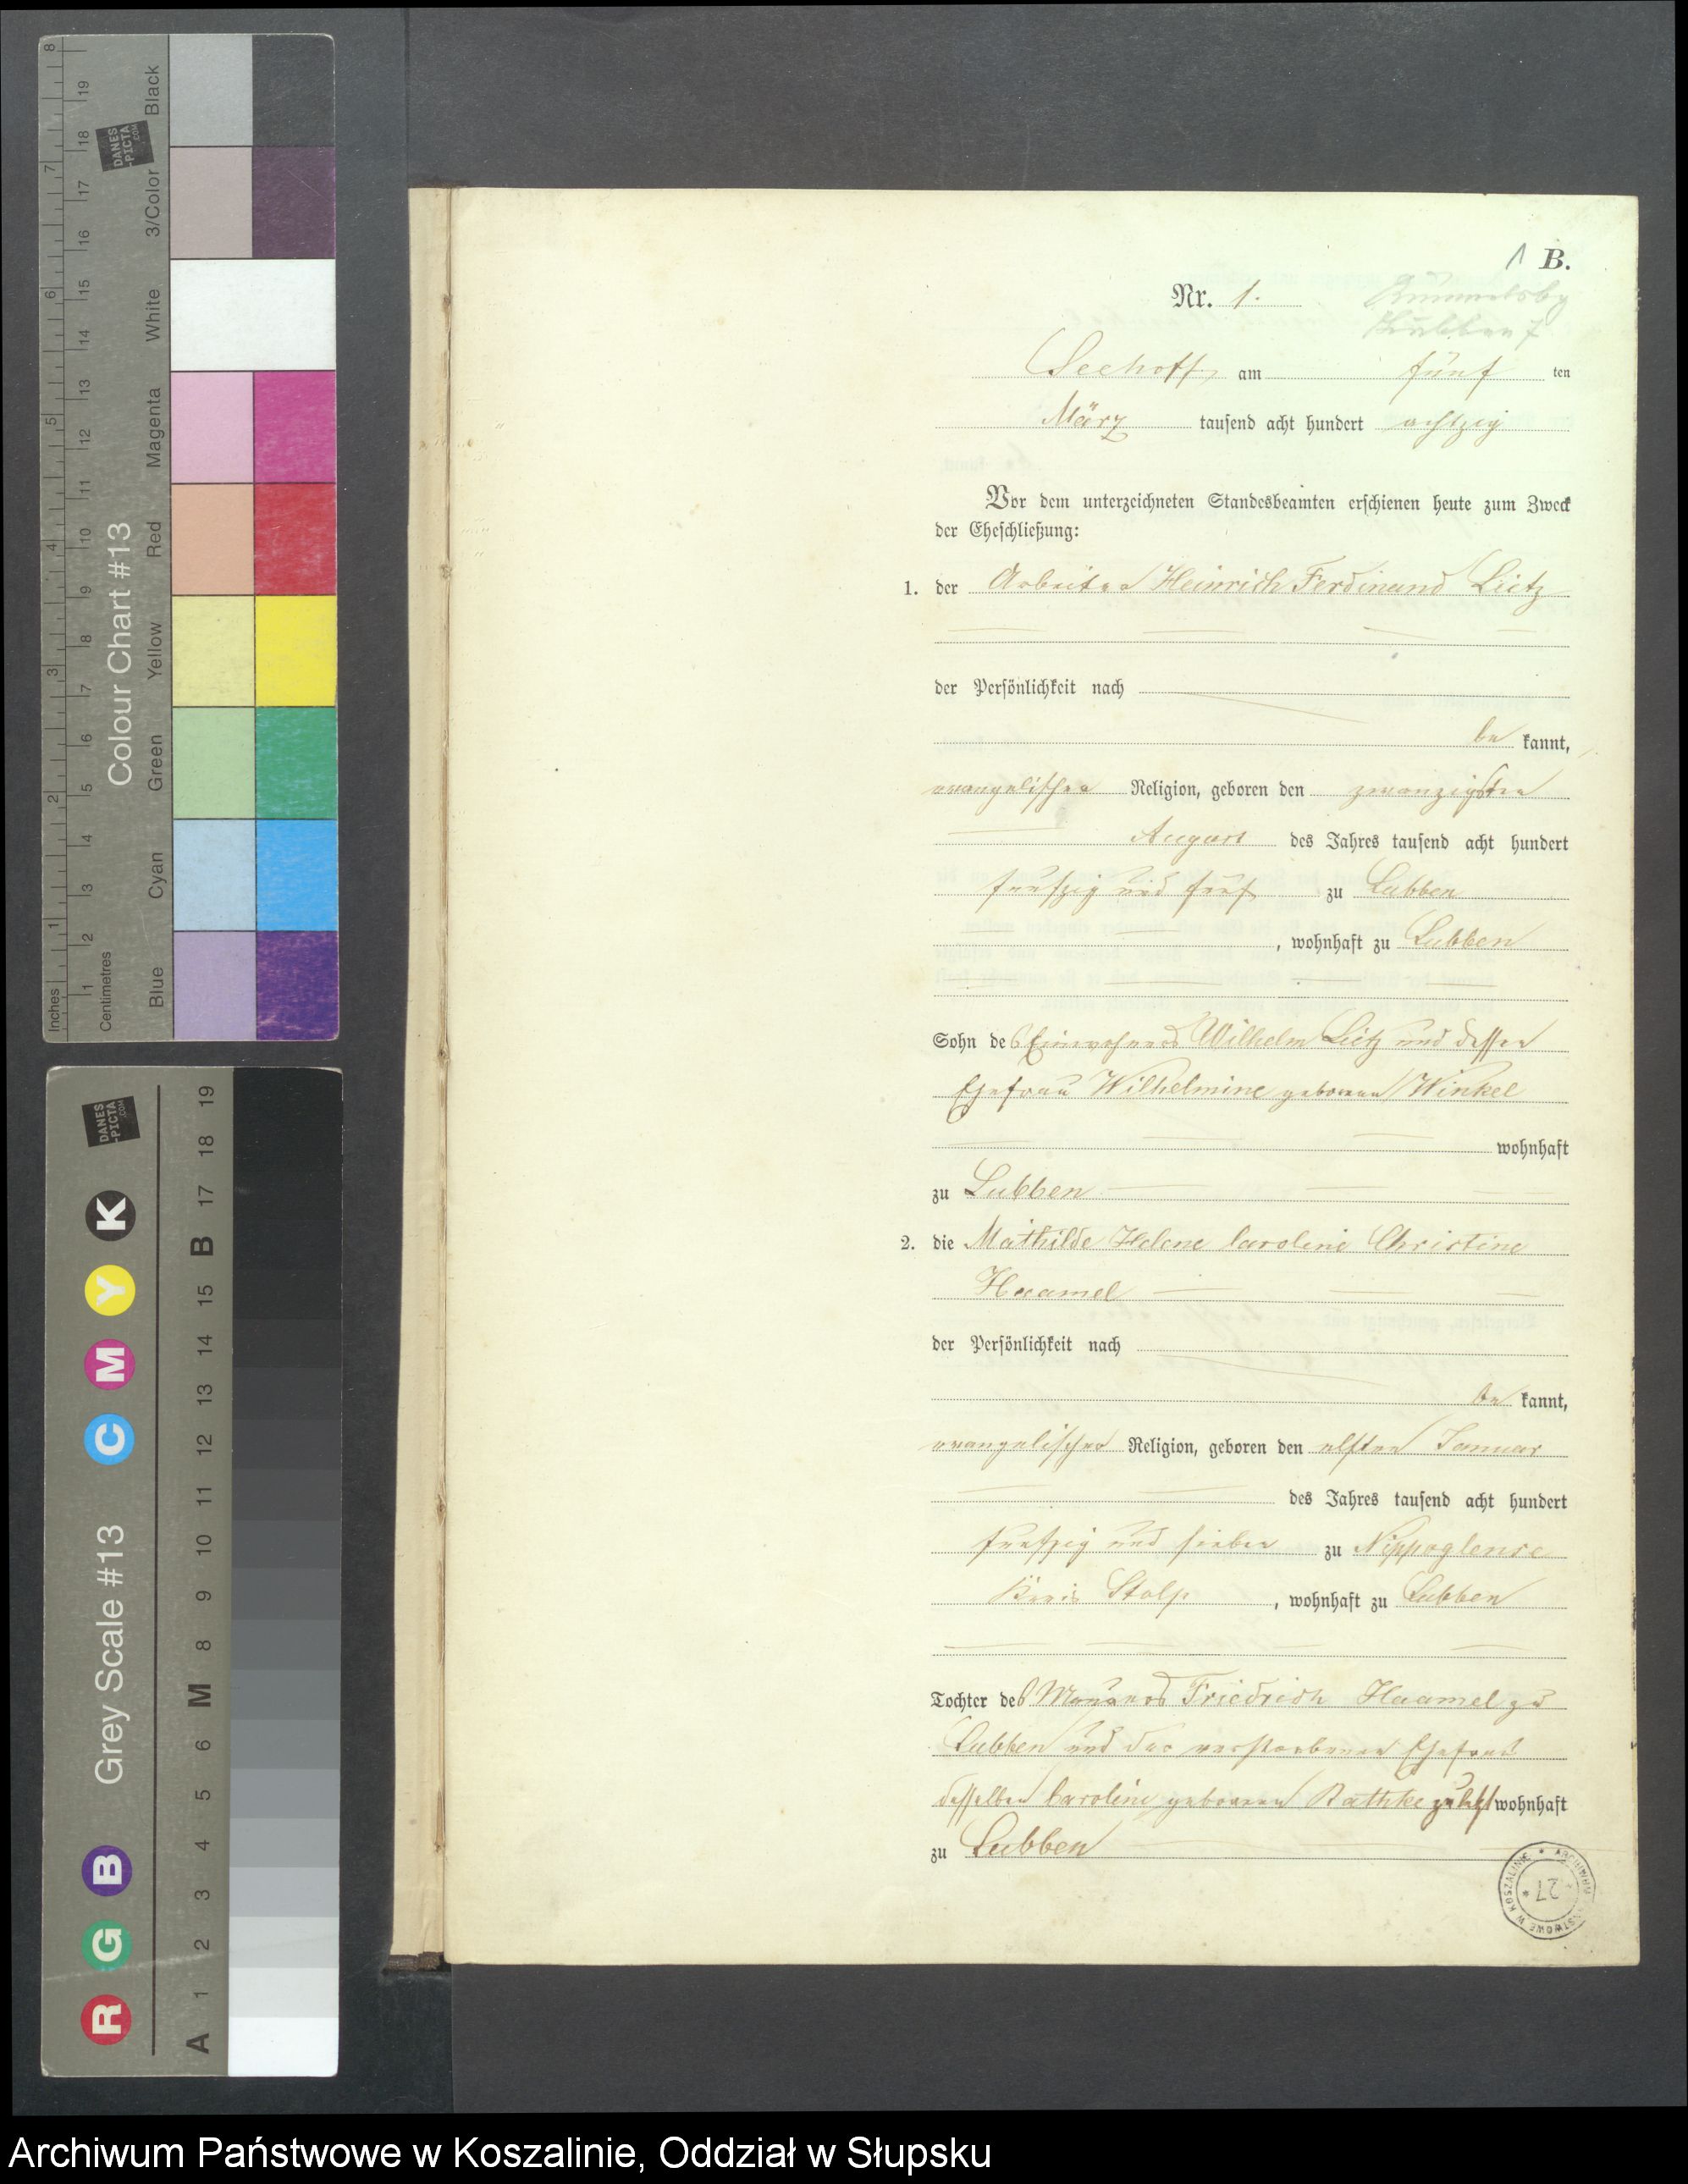 8
7
6
5
4
3
2
1
Inches
19
18
17
16
15
14
13
12
11
10
9
8
7
6
5
4
3
2
1
Centimetres
DANES
-PICTA
.COM
Colour Chart #13
Black
3/Color
White
Magenta
Red
Yellow
Green
Cyan
Blue
DANES
-PICTA
.COM
R G B Grey Scale #13 C M Y K
A 1 2 3 4 5 6 M 8 9 10 11 12 13 14 15 B 17 18 19
1 B.
Nr. 1.
Seehoff am fünf ten
März tausend acht hundert achtzig
Vor dem unterzeichneten Standesbeamten erschienen heute zum Zweck
der Eheschließung:
1. der Arbeiter Heinrich Ferdinand Lietz
der Persönlichkeit nach
be kannt,
evangelischer Religion, geboren den zwanzigsten
August des Jahres tausend acht hundert
funfzig und fünf zu Lubben
, wohnhaft zu Lubben
Sohn des Einwohners Wilhelm Lietz und dessen
Ehefrau Wilhelmine geborenen Winkel
wohnhaft
zu Lubben
2. die Mathilde Helene Caroline Christine
Haamel
der Persönlichkeit nach
be kannt,
evangelischer Religion, geboren den elften Januar
des Jahres tausend acht hundert
funfzig und sieben zu Nippoglense
Kreis Stolp, wohnhaft zu Lubben
Tochter des Maurers Friedrich Haamel zu
Lubben und der verstorbenen Ehefrau
desselben Caroline geborenen Rathke zuletzt wohnhaft
zu Lubben
ARCHIWUM PAŃSTWOWE W KOSZALINIE
* 27 *
Archiwum Państwowe w Koszalinie, Oddział w Słupsku